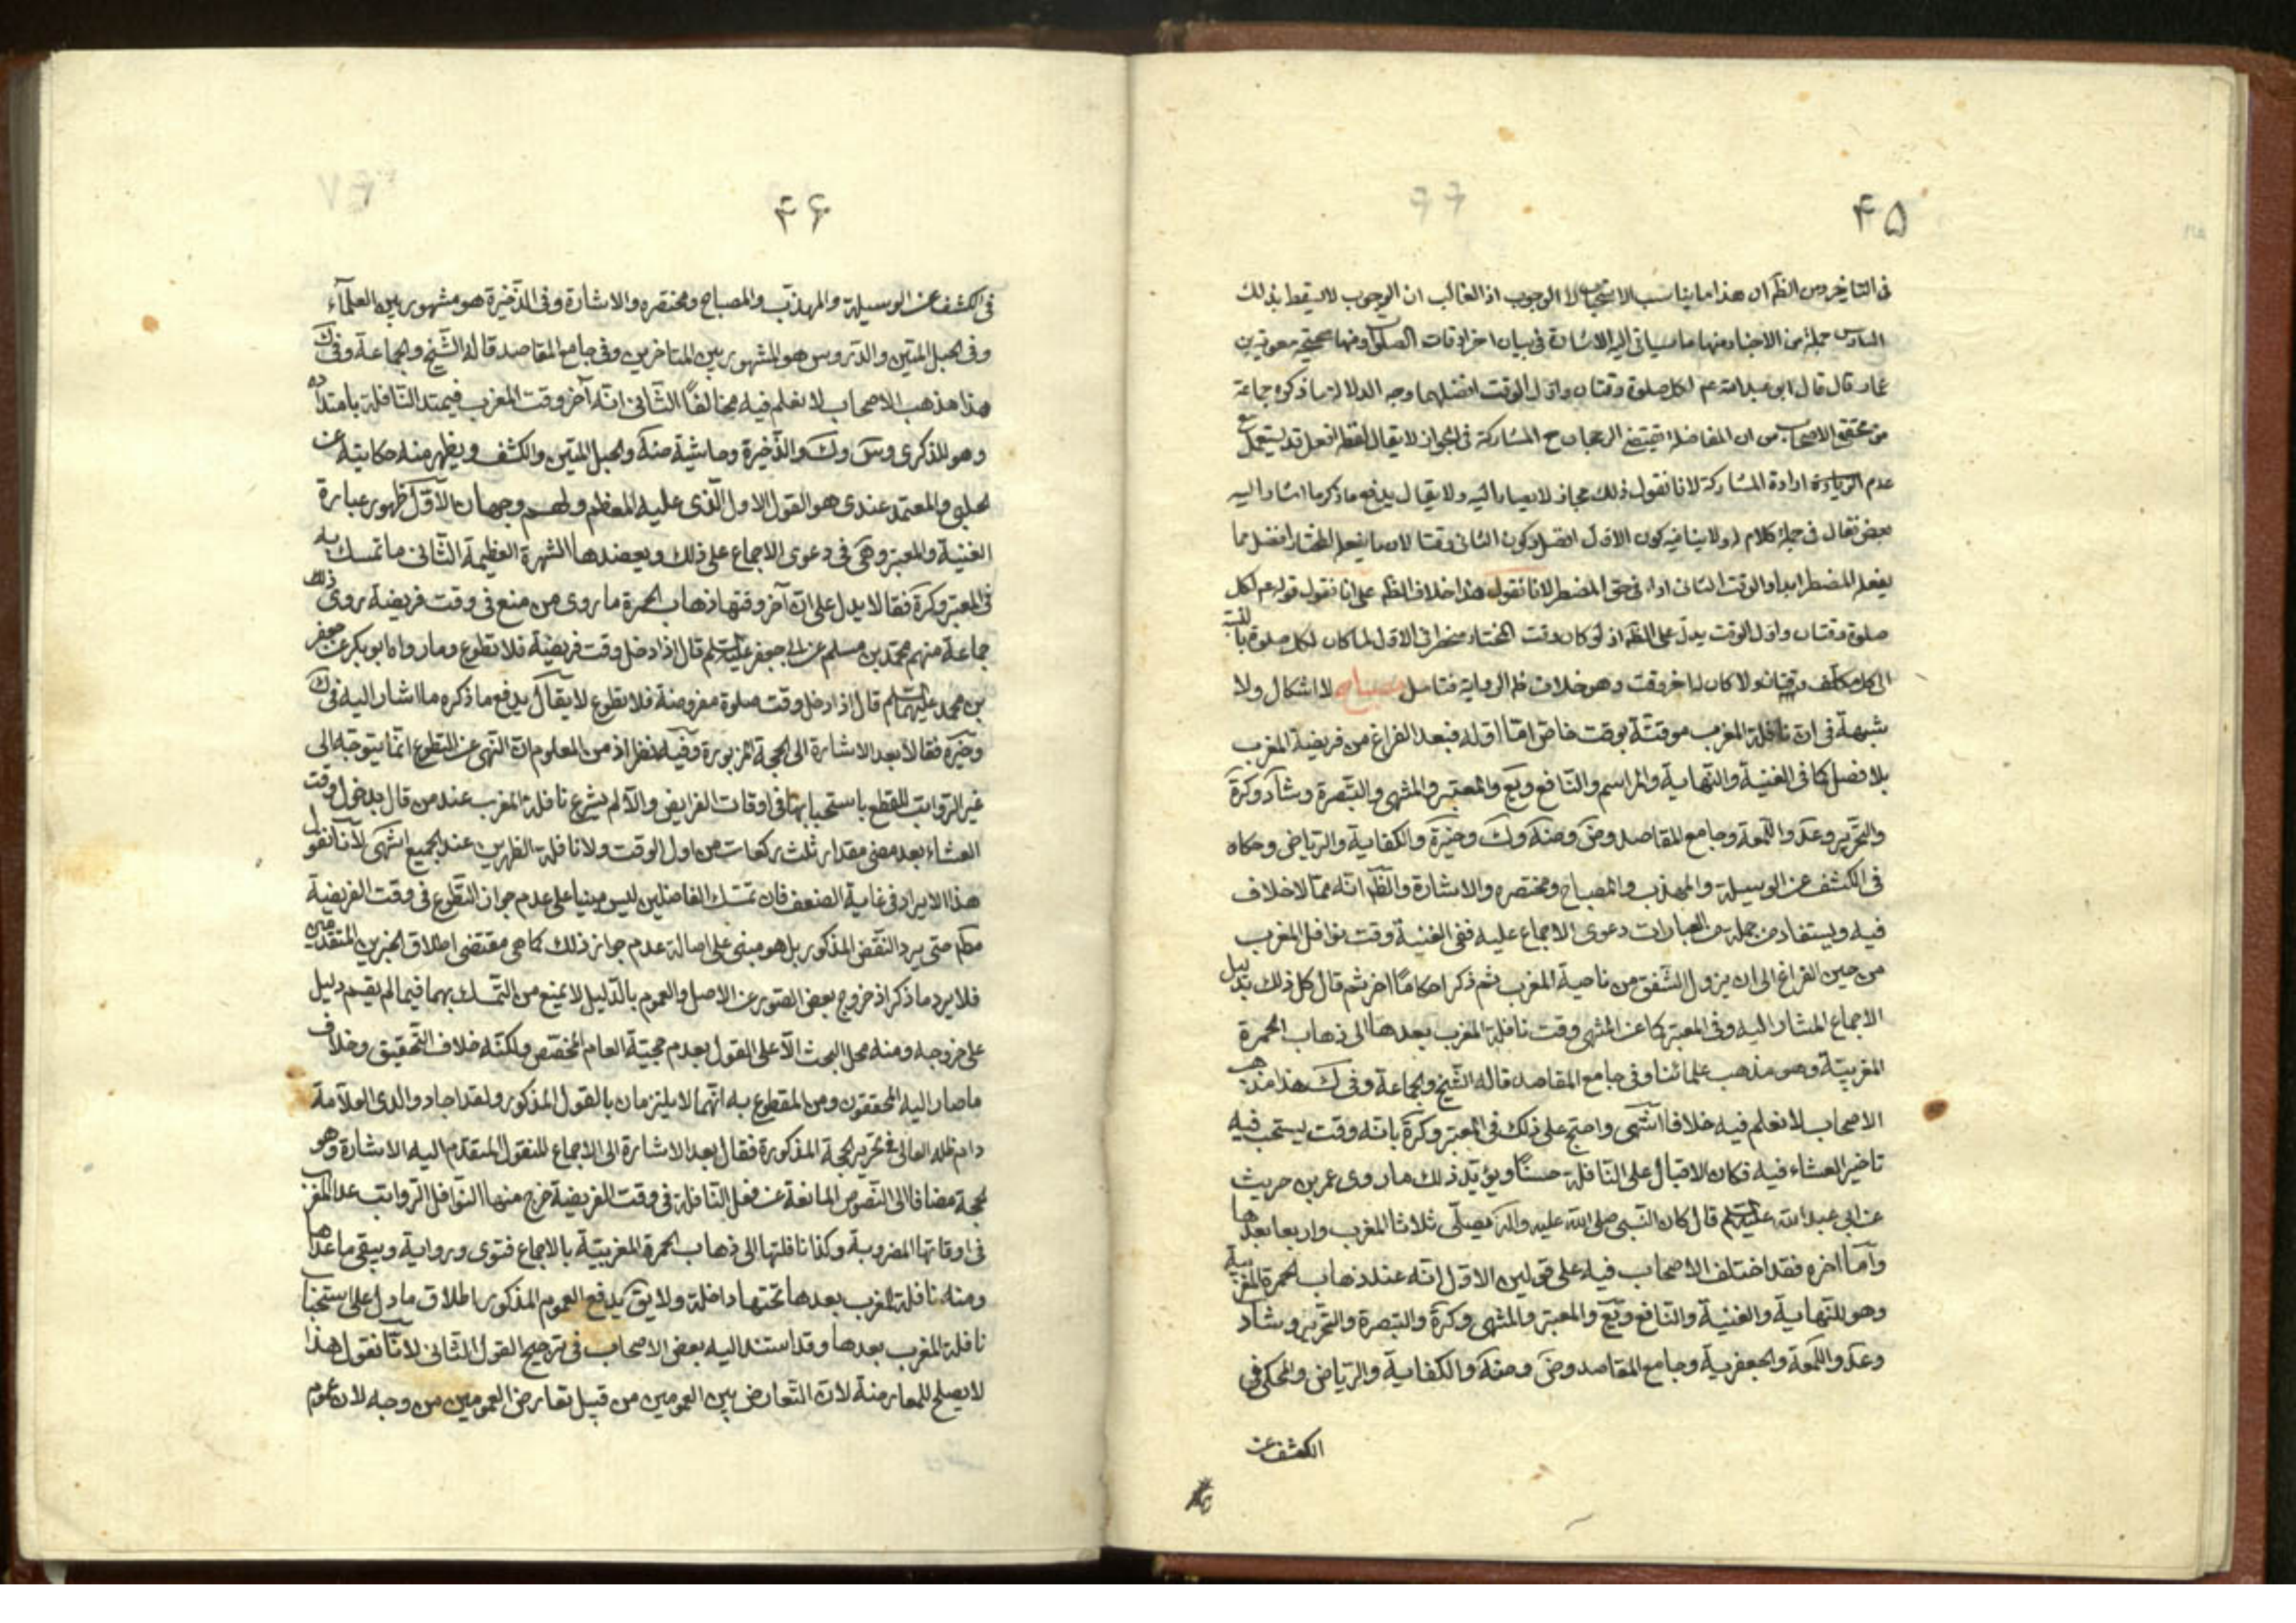 ۴۵
فى التاخير ومن الظم ان هذا مما يناسب الاستحباب لا الوجوب اذ الغالب ان الوجوب لا يسقط بذلك
السادس جملة من الاخبار منها ما سياتى اليه الاشارة فى بيان اخر اوقات الصلوة ومنها صحيحة معوية بن
عمار قال قال ابو عبد الله عم لكل صلوة وقتان واول الوقت افضلهما وجه الدلالة ما ذكره جماعة
من محققى الاصحاب من ان المفاضلة تقتضى الرجحان مع المشاركة فى الجواز لا يقال لفظ افعل قد يستعمل مع
عدم ارادة المشاركة لانا نقول ذلك مجاز لا يصار اليه ولا يقال يدفع ما ذكر ما اشار اليه
بعض فقال فى جملة كلام له ولا ينافيه كون الاول افضل وكون الثانى وقتا لان ما يفعله المختار افضل مما
يفعله المضطر ابدا والوقت الثانى اداء فى حق المضطر لانا نقول هذا خلاف الظم على انا نقول قوله عم لكل
صلوة وقتان واول الوقت يدل على الظم اذ لو كان وقت المختار منحصرا فى الاول لما كان لكل صلوة بالنسبة
الى كل مكلف وقتان ولا كان لها اخر وقت وهو خلاف ظم الرواية فتامل مصباح لا اشكال ولا
شبهة فى ان نافلة المغرب موقتة بوقت خاص امّا اوله فبعد الفراغ من فريضة المغرب
بلا فصل كما فى الغنية والنهاية والمراسم والنافع ويع والمعتبر والمنتهى والتبصرة وشاد وكرة
والتحرير وعد واللمعة وجامع المقاصد وض وضة وك وخيرة والكفاية والرياض وحكاه
فى الكشف عن الوسيلة والمهذب والمصباح ومختصره والاشارة والظم انه مما لا خلاف
فيه ويستفاد من جملة من العبارات دعوى الاجماع عليه ففى الغنية وقت نوافل المغرب
من حين الفراغ الى ان يزول الشفق من ناحية المغرب ثم ذكر احكامًا اخر ثم قال كل ذلك بدليل
الاجماع المشار اليه وفى المعتبر كما عن المنتهى وقت نافلة المغرب بعدها الى ذهاب الحمرة
المغربية وهو مذهب علمائنا وفى جامع المقاصد قاله الشيخ والجماعة وفى ك هذا مذهب
الاصحاب لا نعلم فيه خلافا انتهى واحتج على ذلك فى المعتبر وكرة بانه وقت يستحب فيه
تاخير العشاء فيه فكان الاقبال على النافلة حسنًا ويؤيّد ذلك ما روى عمر بن حريث
عن ابى عبد الله عليه السلم قال كان النبى صلى الله عليه واله يصلى ثلاثا المغرب واربعا بعدها
وامّا اخره فقد اختلف الاصحاب فيه على قولين الاول انه عند ذهاب الحمرة المغربية
وهو للنهاية والغنية والنافع ويع والمعتبر والمنتهى وكرة والتبصرة والتحرير وشاد
وعد واللمعة والجعفرية وجامع المقاصد وض وضة والكفاية والرياض والمحكى فى
الكشف عن
۴۶
فى الكشف عن الوسيلة والمهذب والمصباح ومختصره والاشارة وفى الذخيرة هو مشهور بين العلمآء
وفى الحبل المتين والدروس هو المشهور بين المتاخرين وفى جامع المقاصد قاله الشيخ والجماعة وفى ك
هذا مذهب الاصحاب لا نعلم فيه مخالفًا الثانى انه آخر وقت المغرب فيمتد النافلة بامتداده
وهو للذكرى وس وك والذخيرة وحاشية ضة والحبل المتين والكشف ويظهر منه حكايته عن
الحلبى والمعتمد عندى هو القول الاول الذى عليه المعظم ولهم وجهان الاوّل ظهور عبارة
الغنية والمعتبر وهى فى دعوى الاجماع على ذلك ويعضدها الشهرة العظيمة الثانى ما تمسك به
فى المعتبر وكرة فقالا يدل على ان آخر وقتها ذهاب الحمرة ما روى من منع فى وقت فريضة روى ذلك
جماعة منهم محمد بن مسلم عن ابى جعفر عليه السلم قال اذا دخل وقت فريضة فلا تطوع وما رواه ابو بكر عن جعفر
بن محمد عليهما السلم قال اذا دخل وقت صلوة مفروضة فلا تطوع لا يقال يدفع ما ذكره ما اشار اليه فى ك
وخيرة فقالا بعد الاشارة الى الحجة المزبورة وفيه نظر اذ من المعلوم ان النهى عن التطوع انما يتوجه الى
غير الرواتب للقطع باستحبابها فى اوقات الفرايض والا لم يشرع نافلة المغرب عند من قال بدخول وقت
العشاء بعد مضى مقدار ثلث ركعات من اول الوقت ولا نافلة الظهرين عند الجميع انتهى لانا نقول
هذا الايراد فى غاية الضعف فان تمسك الفاضلين ليس مبنيا على عدم جواز التطوع فى وقت الفريضة
مطم حتى يرد النقض المذكور بل هو مبنى على اصالة عدم جواز ذلك كما هى مقتضى اطلاق الخبرين المتقدمين
فلا يرد ما ذكر اذ خروج بعض الصور عن الاصل والعموم بالدليل لا يمنع من التمسك بهما فيما لم يقم دليل
على خروجه ومنه محل البحث الا على القول بعدم حجية العام المخصص ولكنه خلاف التحقيق وخلاف
ما صار اليه المحققون ومن المقطوع به انهما لا يلتزمان بالقول المذكور ولقد اجاد والدى العلامة
دام ظله العالى فى تحرير الحجة المذكورة فقال بعد الاشارة الى الاجماع المنقول المتقدم اليه الاشارة وهو
الحجة مضافا الى النصوص المانعة عن فعل النافلة فى وقت الفريضة خرج منها النوافل الرواتب عدا المغرب
فى اوقاتها المضروبة وكذا نافلتها الى ذهاب الحمرة المغربية بالاجماع فتوى ورواية ويبقى ما عداها
ومنه نافلة المغرب بعدها تحتها داخلة ولا يق يدفع العموم المذكور باطلاق ما دل على استحباب
نافلة المغرب بعدها وقد استند اليه بعض الاصحاب فى ترجيح القول الثانى لانا نقول هذا
لا يصلح للمعارضة لان التعارض بين العمومين من قبيل تعارض العمومين من وجه لان عموم